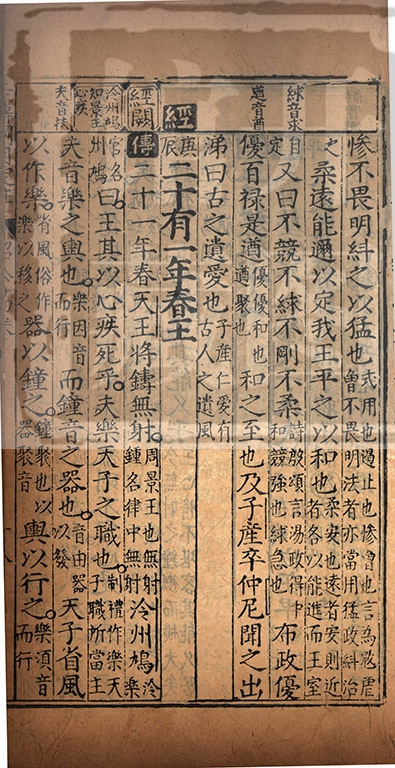 絿音求
遒音酋
經闕
泠州鳩知景王心疾
夫音扶
慘不畏明糾之以猛也式用也遏止也慘曾也言為寇虐曾不畏明法者亦當用猛政糾治
之柔遠能邇以定我王平之以和也柔安也邇近也遠者安則近者各以能進而王室
自定又曰不競不絿不剛不柔詩殷頌言湯政得中和競強也絿急也布政優
優百禄是遒優優和也遒聚也和之至也及子產卒仲尼聞之出
涕曰古之遺愛也子產仁愛有古人之遺風
經庚辰二十有一年春王
傳二十一年春天王將鑄無射周景王也無射鍾名律中無射泠州鳩泠樂
官名州鳩曰王其以心疾死乎夫樂天子之職也制禮作樂天子職所當主
夫音樂之輿也樂因音而行而鐘音之器也音由器以發天子省風
以作樂省風俗作樂以移之器以鐘之鐘聚也以器聚音輿以行之樂須音而行